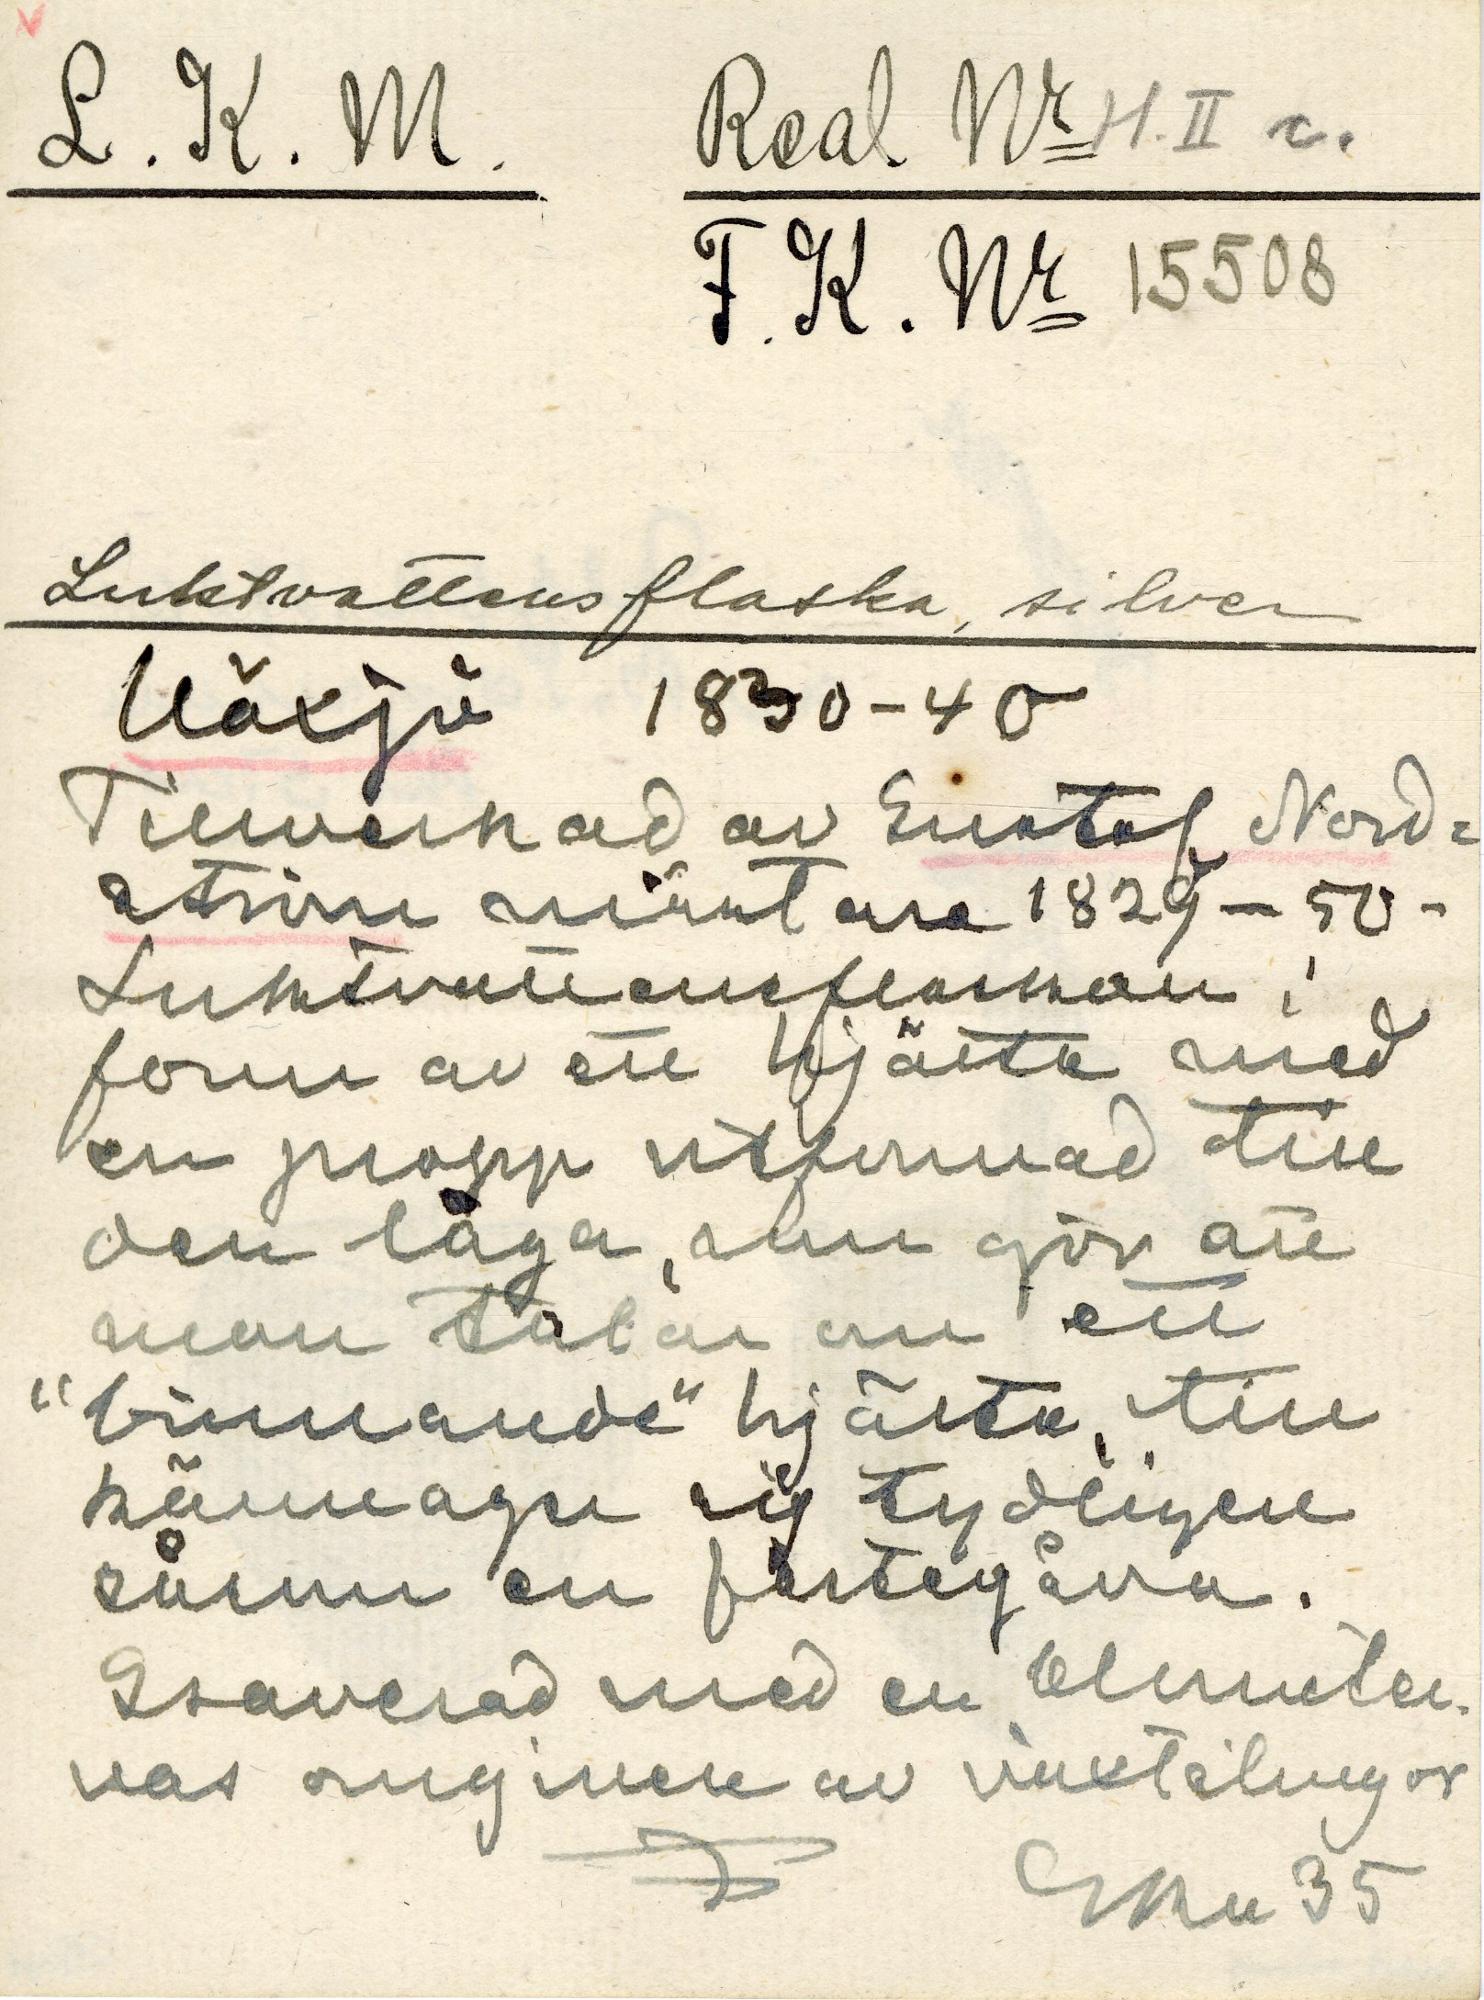 L. K. M. Real Nr H. II c.
F. K. Nr 15508
Luktvattensflaska, silver
Växjö 1830-40
Tillverkad av Gustaf Nord=
ström mästare 1829-50-
Luktvattensflaskan i
form av ett hjärta med
en propp utformad till
den låga, som gör att
man talar om ett
"brinnande" hjärta, till
sig tydligen
såsom en fästegåva.
Graverad med en blomster-
vas omgiven av växtslingor
35